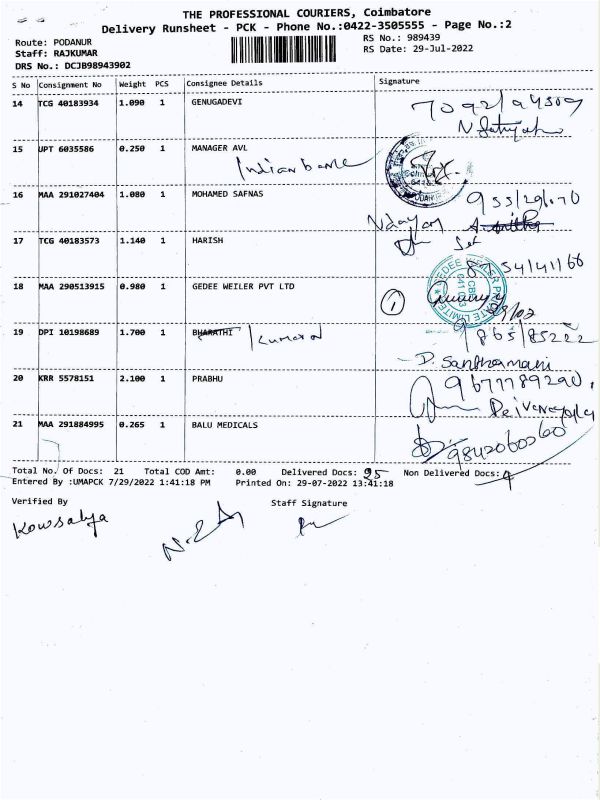 THE PROFESSIONAL COURIERS, Coimbatore
Delivery Runsheet - PCK - Phone No.:0422-3505555 - Page No.:2
Route: PODANUR
RS No.: 989439
Staff: RAJKUMAR
RS Date: 29-Jul-2022
DRS No.: DCJB98943902
S No Consignment No Weight PCS Consignee Details Signature
14 TCG 40183934 1.090 1 GENUGADEVI
15 UPT 6035586 0.250 1 MANAGER AVL
Indian bank
16 MAA 291027404 1.080 1 MOHAMED SAFNAS
17 TCG 40183573 1.140 1 HARISH
18 MAA 290513915 0.980 1 GEDEE WEILER PVT LTD
1
19 DPI 10198689 1.700 1 BHARATHI / Kumaran
D. Santhamani
20 KRR 5578151 2.100 1 PRABHU
9677789290
21 MAA 291884995 0.265 1 BALU MEDICALS
9842060260
Total No. Of Docs: 21 Total COD Amt: 0.00 Delivered Docs: Non Delivered Docs:
Entered By :UMAPCK 7/29/2022 1:41:18 PM Printed On: 29-07-2022 13:41:18
Verified By Staff Signature
Kowsalya